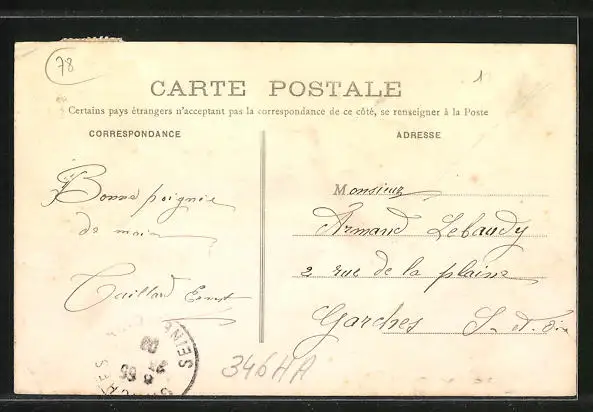 78
1
CARTE POSTALE
Certains pays étrangers n'acceptant pas la correspondance de ce côté, se renseigner à la Poste
CORRESPONDANCE
ADRESSE
Bonne poignée
de main
Monsieur
Armand Lebaudy
2 rue de la plaine
Garches S. et Oise
SEINE
346HA